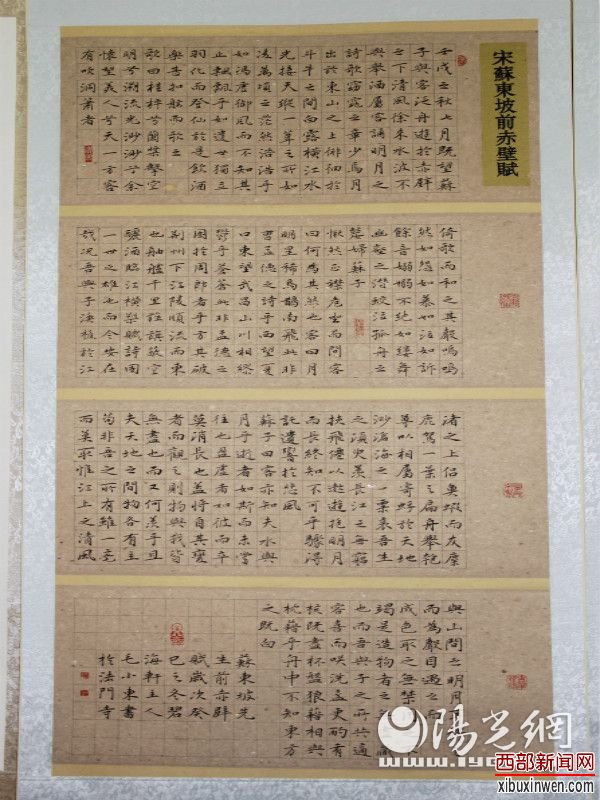 宋蘇東坡前赤壁賦
壬戌之秋七月既望蘇
子與客泛舟遊於赤壁
之下清風徐來水波不
興舉酒屬客誦明月之
詩歌窈窕之章少焉月
出於東山之上徘徊於
斗牛之間白露橫江水
光接天縱一葦之所如
凌萬頃之茫然浩浩乎
如馮虛御風而不知其
止飄飄乎如遺世獨立
羽化而登仙於是飲酒
樂甚扣舷而歌之
歌曰桂棹兮蘭槳擊空
明兮溯流光渺渺兮余
懷望美人兮天一方客
有吹洞簫者
倚歌而和之其聲嗚嗚
然如怨如慕如泣如訴
餘音嫋嫋不絕如縷舞
幽壑之潛蛟泣孤舟之
嫠婦蘇子
愀然正襟危坐而問客
曰何為其然也客曰月
明星稀烏鵲南飛此非
曹孟德之詩乎西望夏
口東望武昌山川相繆
鬱乎蒼蒼此非孟德之
困於周郎者乎方其破
荊州下江陵順流而東
也舳艫千里旌旗蔽空
釃酒臨江橫槊賦詩固
一世之雄也而今安在
哉況吾與子漁樵於江
渚之上侶魚蝦而友麋
鹿駕一葉之扁舟舉匏
尊以相屬寄蜉於天地
渺滄海之一粟哀吾生
之須臾羨長江之無窮
挾飛僊以遨遊抱明月
而長終知不可乎驟得
託遺響於悲風
蘇子曰客亦知夫水與
月乎逝者如斯而未嘗
往也盈虛者如彼而卒
莫消長也蓋將自其變
者而觀之則物與我皆
無盡也而又何羨乎且
夫天地之間物各有主
苟非吾之所有雖一毫
而莫取惟江上之清風
與山間之明月
而為聲目遇之而
成色取之無禁
竭是造物者之無
也而吾與子之所共適
客喜而咲洗盞更酌有
核既盡杯盤狼藉相與
枕藉乎舟中不知東方
之既白
蘇東坡先
生前赤壁
賦歲次癸
巳之冬碧
海軒主人
毛小東書
於法門寺
陽光網
西部新闻网
xibuxinwen.com